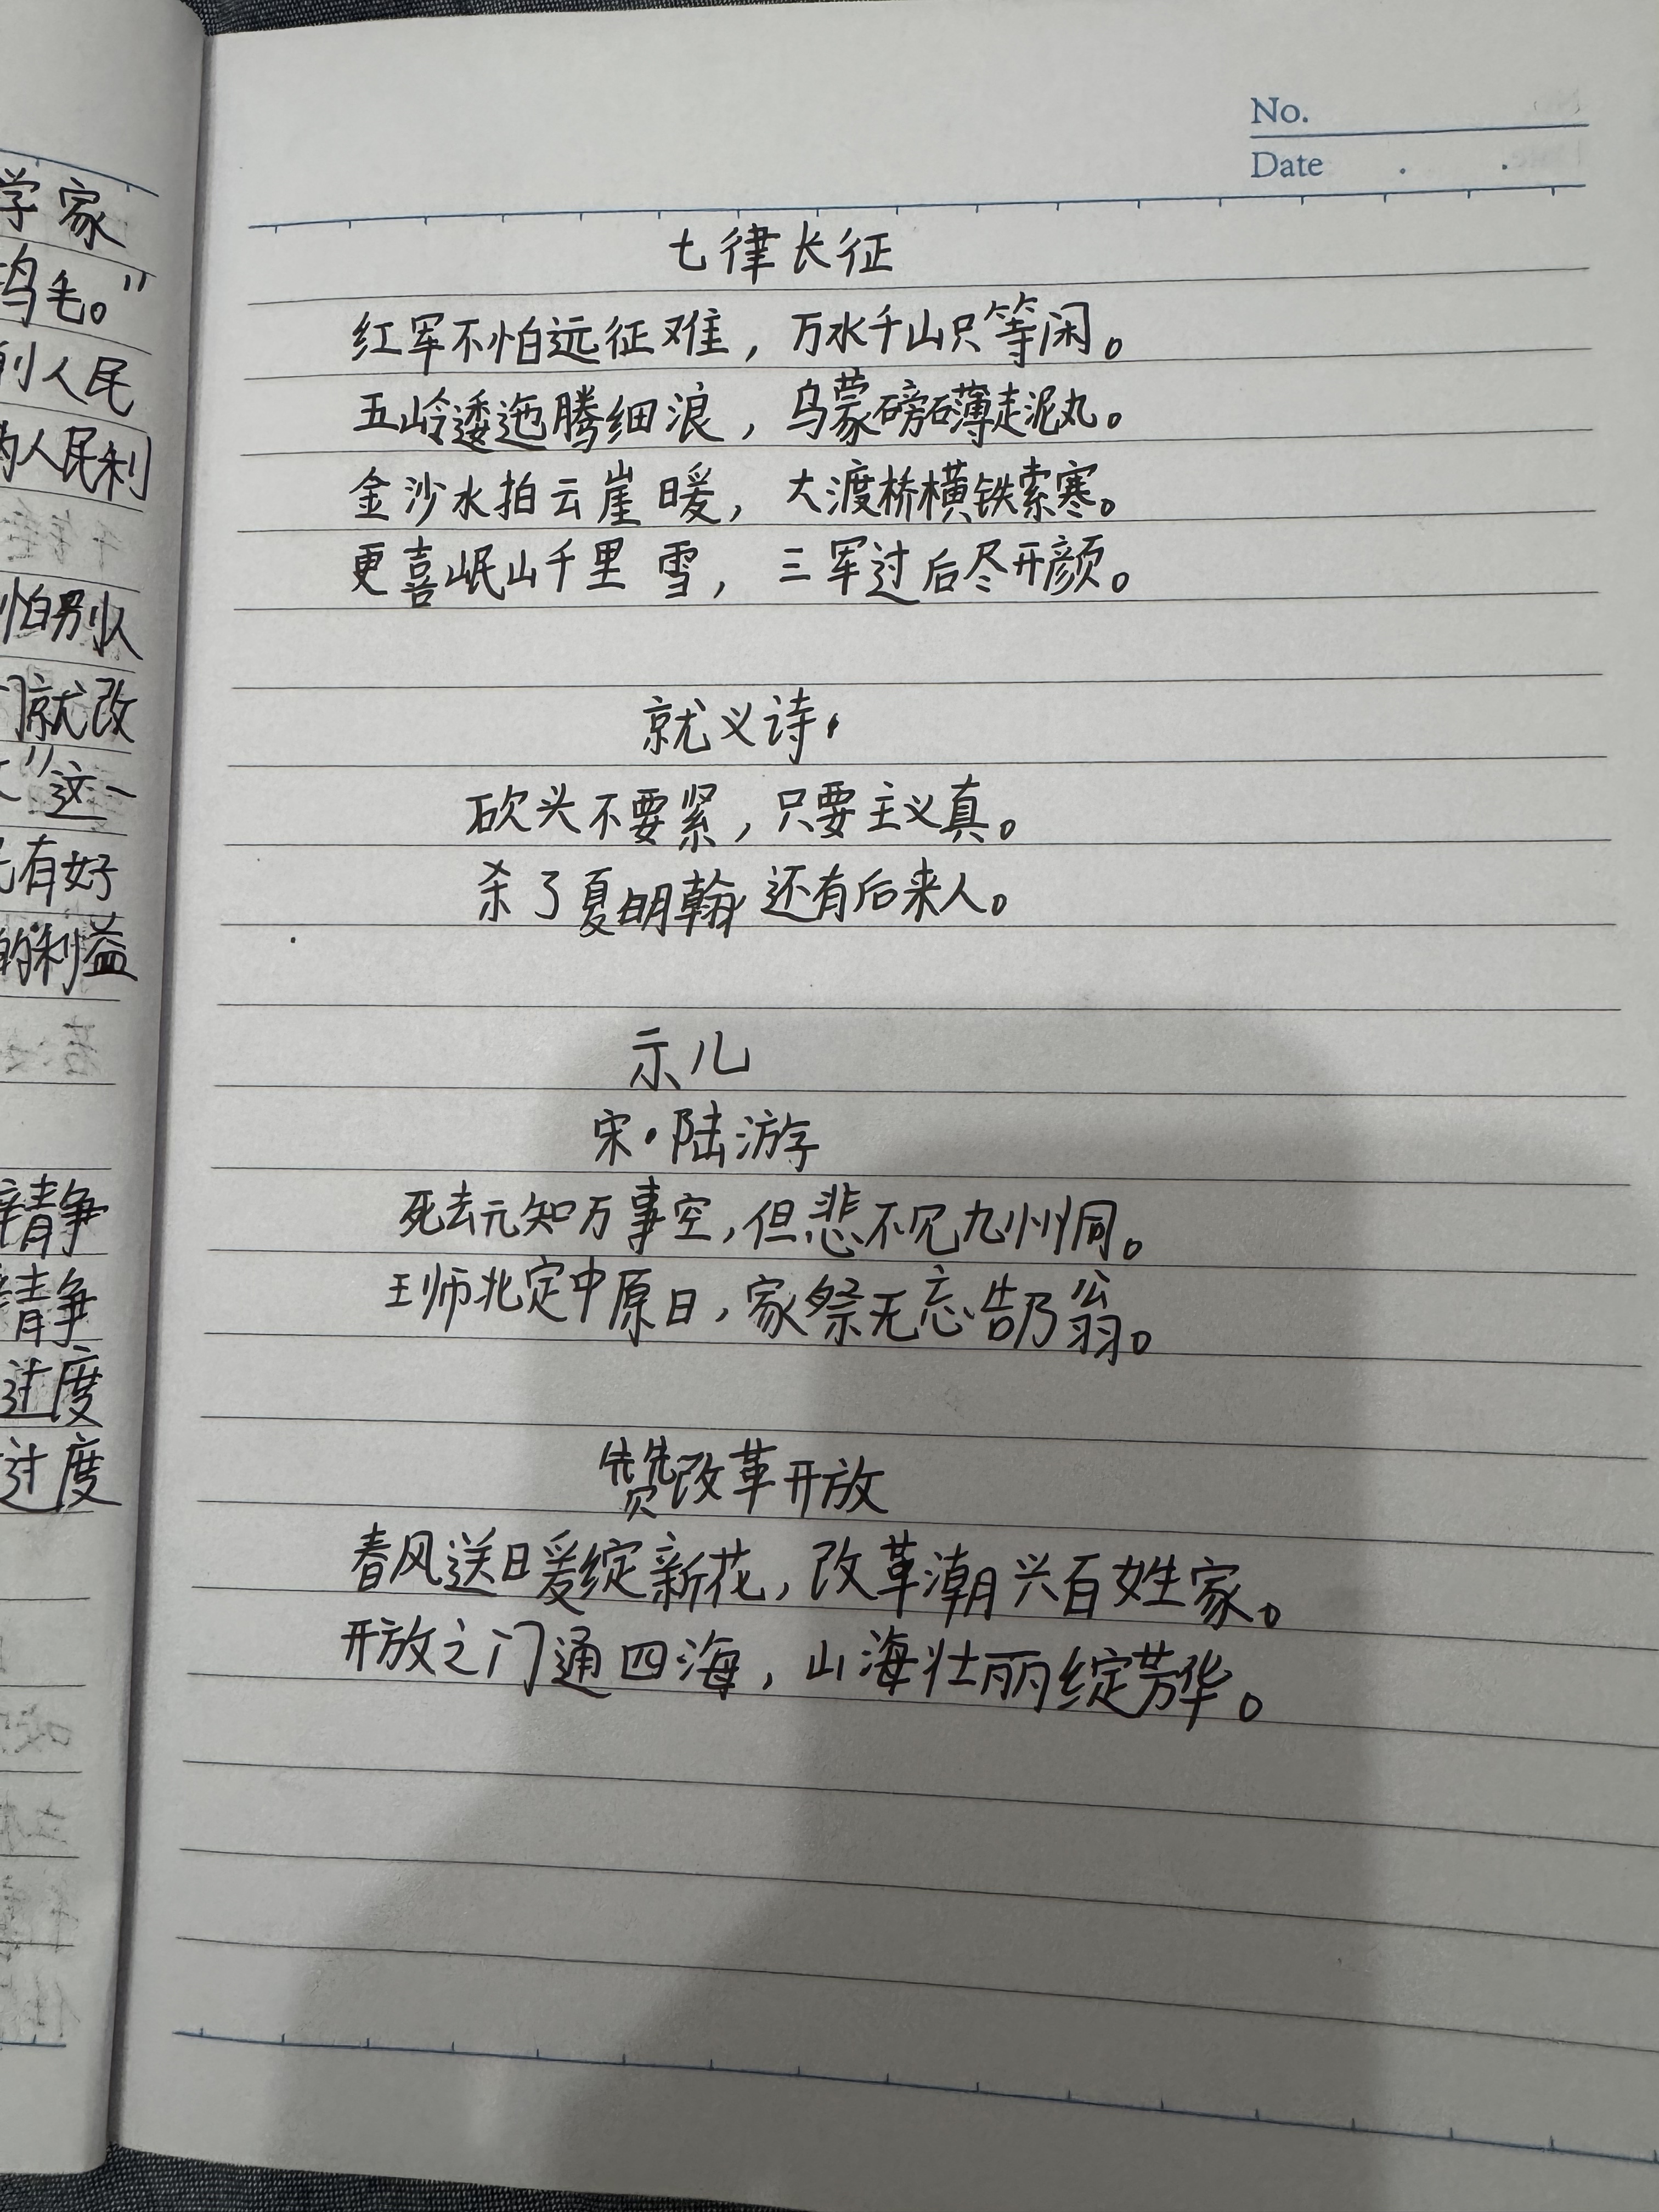 学家
鸿毛。"
到人民
为人民利
怕别人
们就改
"这一
有好
的利益
静
静
过度
过度
No.
Date . .
七律长征
红军不怕远征难，万水千山只等闲。
五岭逶迤腾细浪，乌蒙磅礴走泥丸。
金沙水拍云崖暖，大渡桥横铁索寒。
更喜岷山千里雪，三军过后尽开颜。
就义诗
砍头不要紧，只要主义真。
杀了夏明翰 还有后来人。
示儿
宋·陆游
死去元知万事空，但悲不见九州同。
王师北定中原日，家祭无忘告乃翁。
赞改革开放
春风送暖绽新花，改革潮兴百姓家。
开放之门通四海，山海壮丽绽芳华。